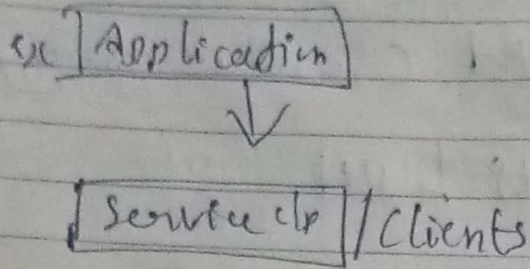 ex Application
Service dp / Clients